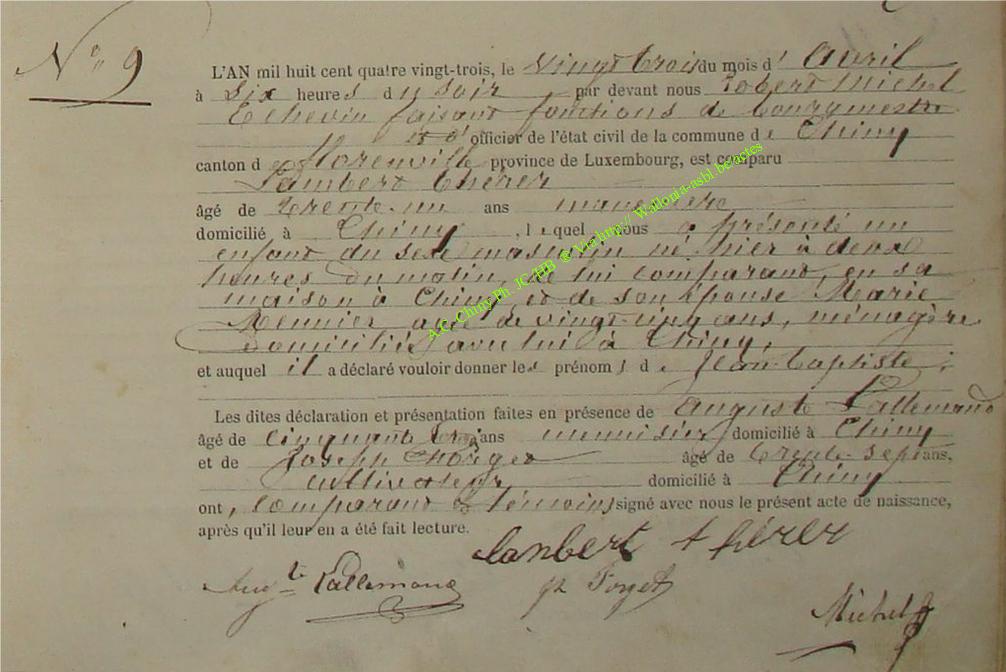 N° 9
L'AN mil huit cent quatre vingt-trois, le vingt trois du mois d'Avril
à six heures du soir par devant nous Robert Michel
Echevin faisant fonctions de bourgmestre
et d'officier de l'état civil de la commune de Chiny
canton de Florenville province de Luxembourg, est comparu
Lambert Thérer
âgé de trente-un ans manœuvre
domicilié à Chiny, lequel nous a présenté un
enfant du sexe masculin né hier à deux
heures du matin, de lui comparant, en sa
maison à Chiny et de son épouse Marie
Meunier agée de vingt-cinq ans, ménagère
domiciliée avec lui à Chiny,
et auquel il a déclaré vouloir donner les prénoms de Jean-Baptiste;
Les dites déclaration et présentation faites en présence de Auguste Lallemand
âgé de cinquante trois ans menuisier domicilié à Chiny
et de Joseph Forget âgé de trente-sept ans,
cultivateur domicilié à Chiny
ont, comparant et témoins signé avec nous le présent acte de naissance,
après qu'il leur en a été fait lecture.
lanbert thérer
Augte Lallemand
Forget
Michel
A.C. Chiny Ph. JC HB @ Via http// Wallonia-asbl.be/actes